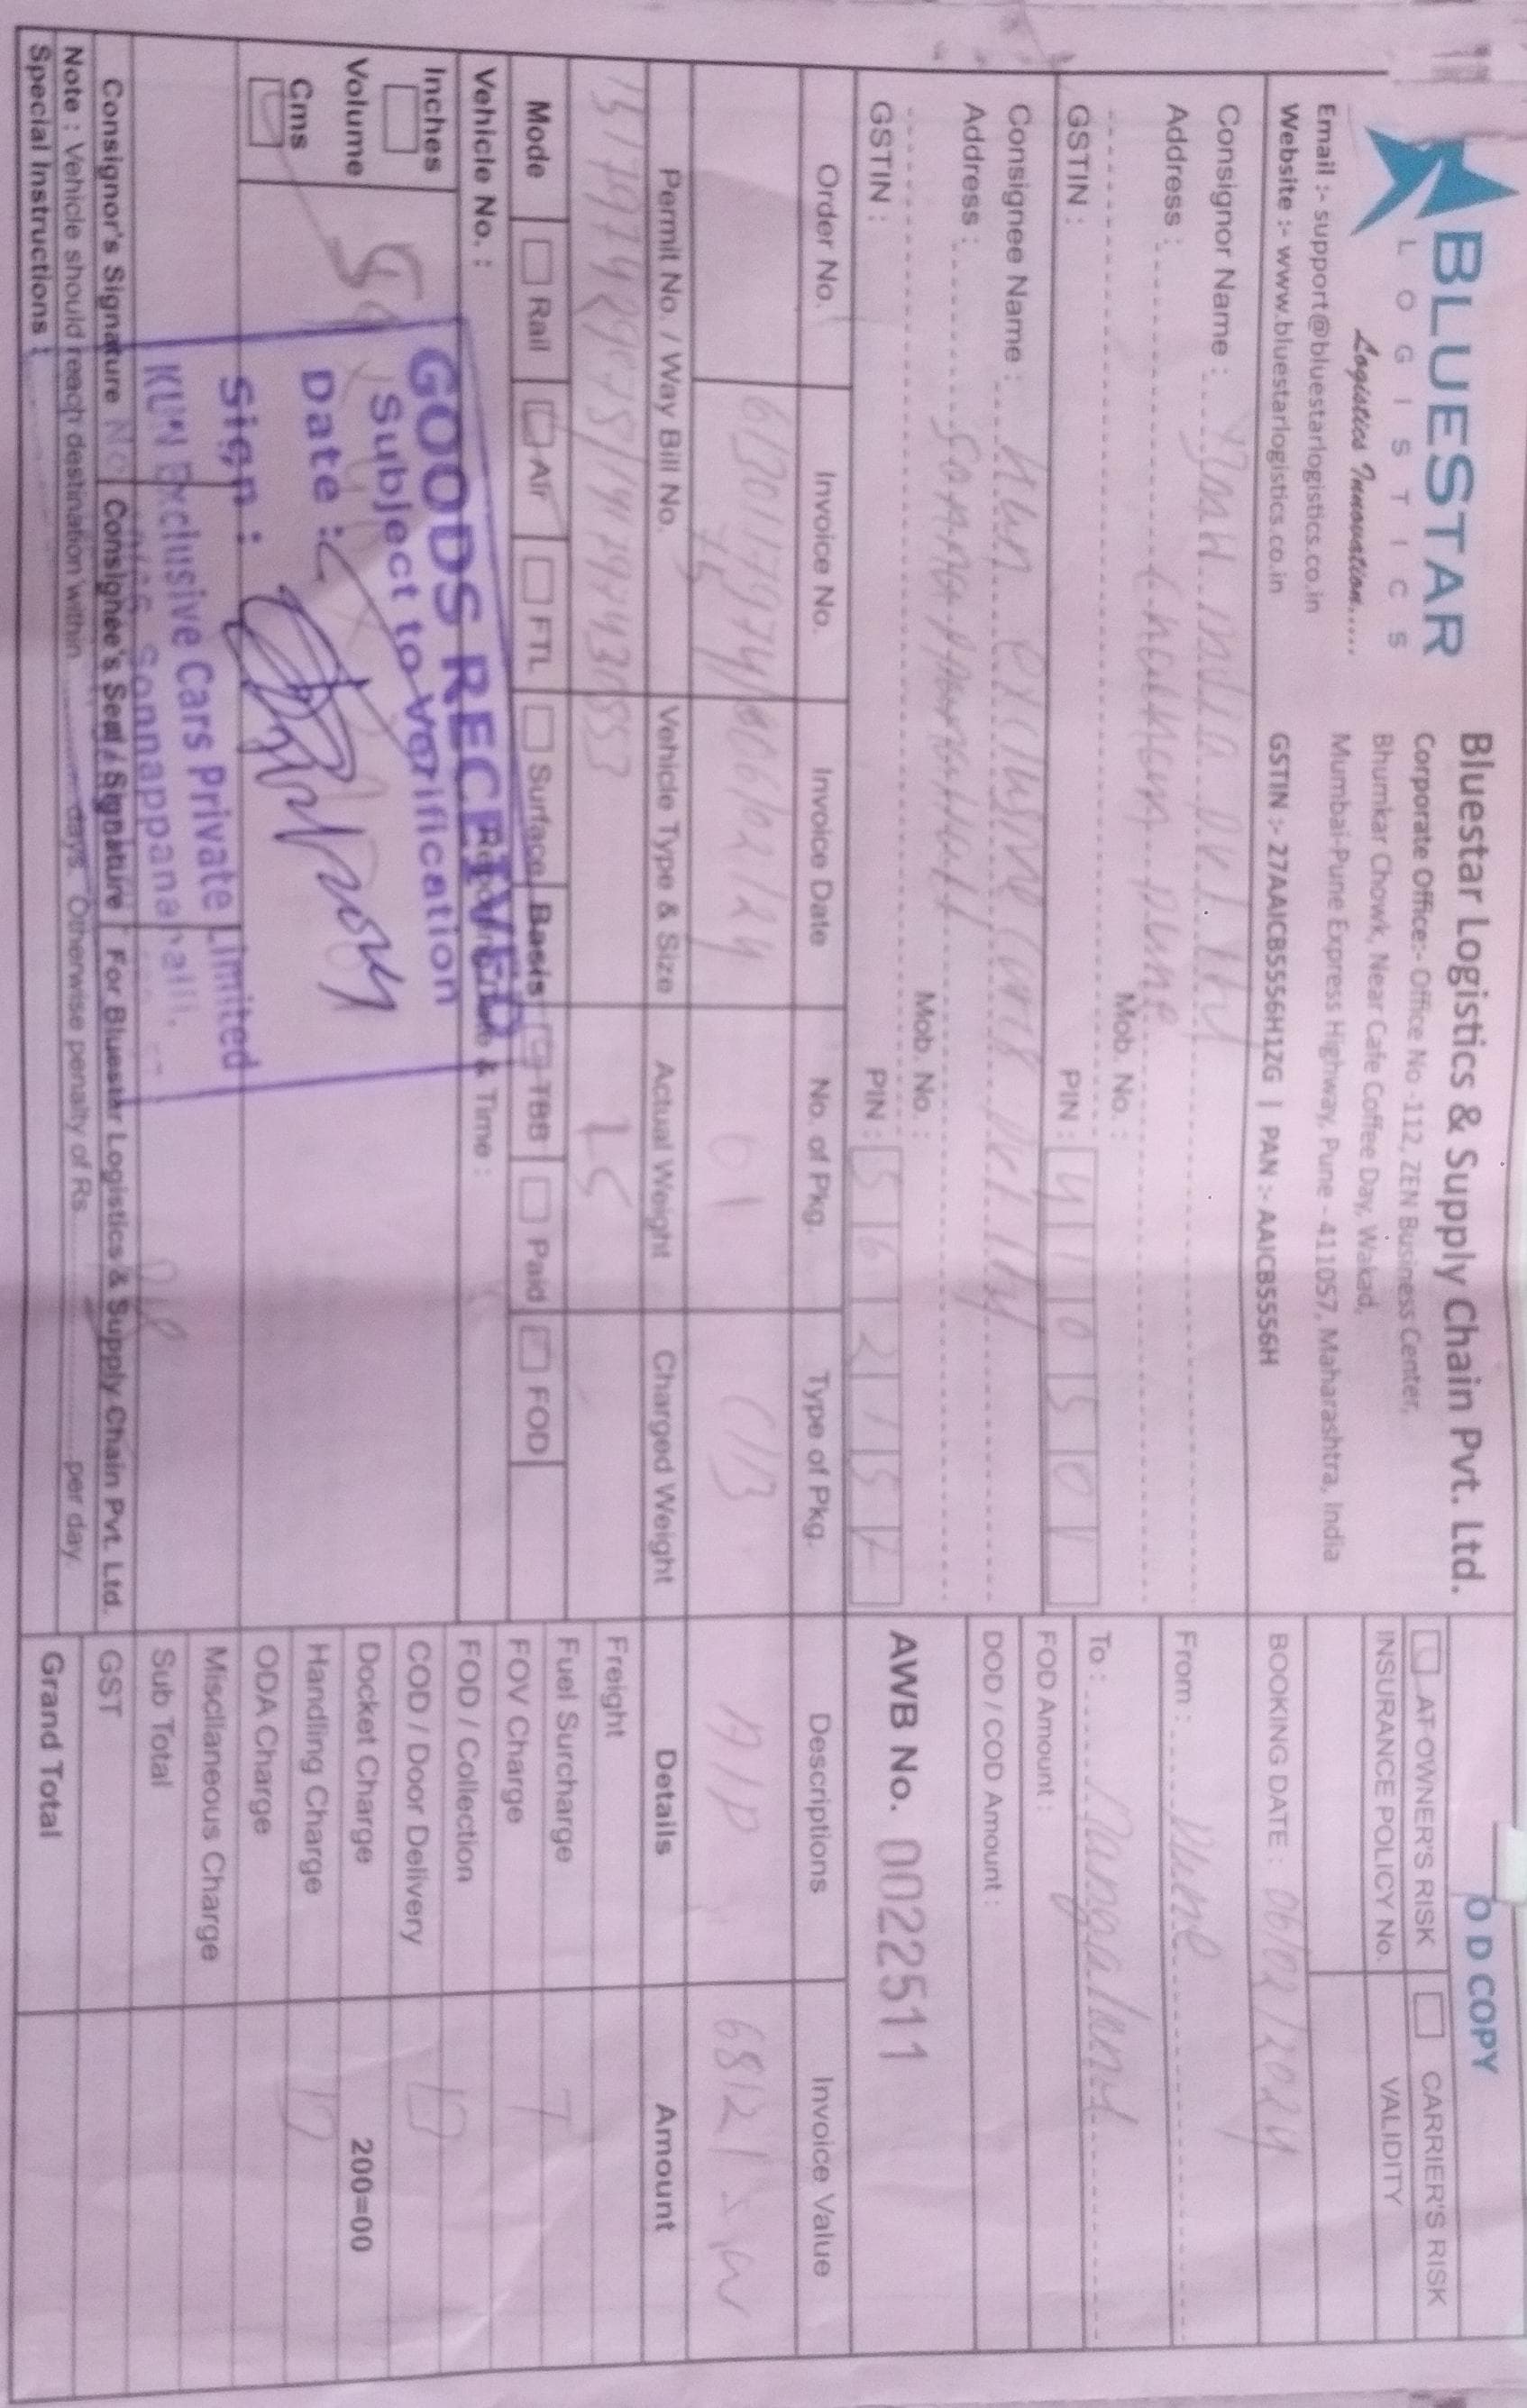 BLUESTAR
LOGISTICS
Logistics Innovation.....
Email :- support@bluestarlogistics.co.in
Website :- www.bluestarlogistics.co.in
Bluestar Logistics & Supply Chain Pvt. Ltd.
Corporate Office:- Office No -112, ZEN Business Center,
Bhumkar Chowk, Near Cafe Coffee Day, Wakad,
Mumbai-Pune Express Highway, Pune - 411057, Maharashtra, India
GSTIN :- 27AAICB5556H1ZG | PAN :- AAICB5556H
O D COPY
AT OWNER'S RISK CARRIER'S RISK
INSURANCE POLICY No. VALIDITY
BOOKING DATE : 06/02/2024
Consignor Name : india pvt ltd
Address : pune
Mob. No. :
GSTIN : PIN : 410501
From : Pune
To :
FOD Amount :
DOD / COD Amount :
Consignee Name : Kun exclusive cars pvt ltd
Address :
Mob. No. :
GSTIN : PIN : 562157
AWB No. 0022511
Order No. Invoice No. Invoice Date No. of Pkg. Type of Pkg. Descriptions Invoice Value
6130117974/ 06/02/24 01 C/B A/P
75
Permit No. / Way Bill No. Vehicle Type & Size Actual Weight Charged Weight Details Amount
15
Freight
Fuel Surcharge
FOV Charge
FOD / Collection
COD / Door Delivery
Docket Charge 200=00
Handling Charge
ODA Charge
Miscllaneous Charge
Sub Total
GST
Grand Total
Mode Rail Air FTL Surface Basis TBB Paid FOD
Vehicle No. : Reporting Date & Time :
Inches
Volume
Cms
GOODS RECEIVED
Subject to Verification
Date :
Sign :
KUN Exclusive Cars Private Limited
Sonnappanahalli.
Consignor's Signature Consignee's Seal / Signature For Bluestar Logistics & Supply Chain Pvt. Ltd.
Note : Vehicle should reach destination within ............ days. Otherwise penalty of Rs. ............ per day
Special Instructions :